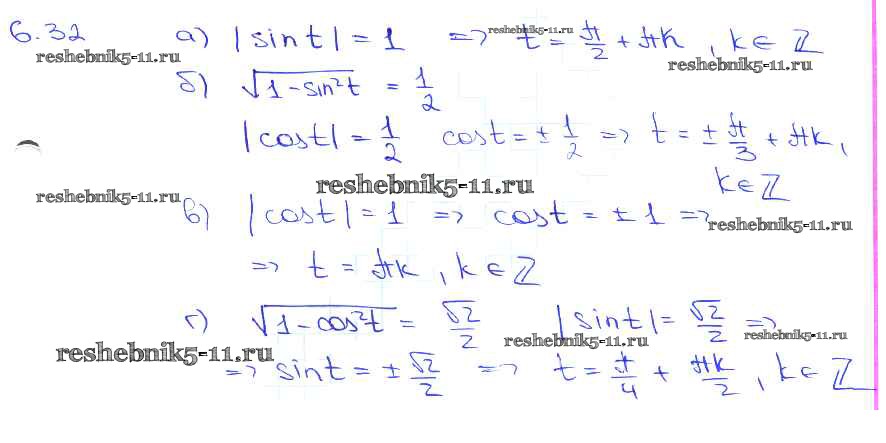 6.32 а) |sin t| = 1 => t = π/2 + πk, k ∈ ℤ
reshebnik5-11.ru
reshebnik5-11.ru
reshebnik5-11.ru
б) √(1-sin²t) = 1/2
|cost| = 1/2 cost = ± 1/2 => t = ± π/3 + πk,
k ∈ ℤ
reshebnik5-11.ru
reshebnik5-11.ru
в) |cost| = 1 => cost = ± 1 =>
reshebnik5-11.ru
=> t = πk, k ∈ ℤ
г) √(1-cos²t) = √2/2 |sint| = √2/2 =>
reshebnik5-11.ru
reshebnik5-11.ru
reshebnik5-11.ru
=> sint = ± √2/2 => t = π/4 + πk/2, k ∈ ℤ